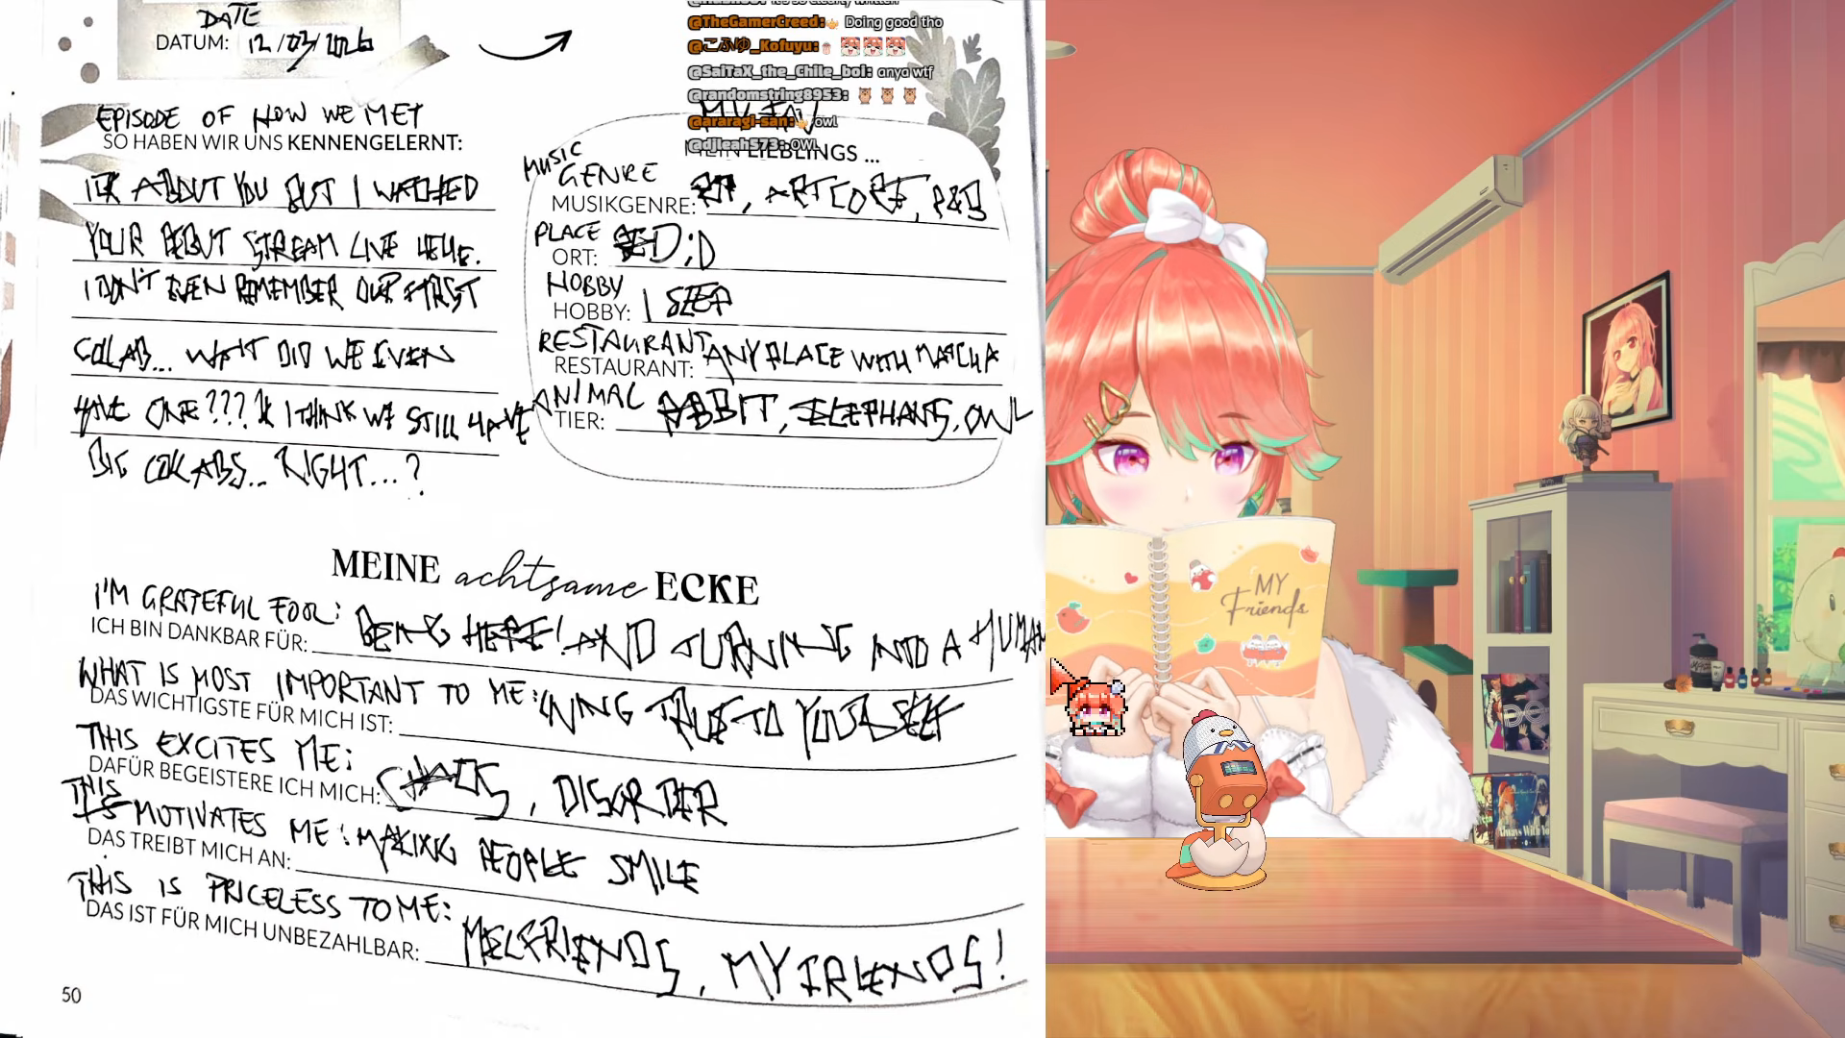 DATE
DATUM: 12/03/2026
EPISODE OF HOW WE MET
SO HABEN WIR UNS KENNENGELERNT:
IDK ABOUT YOU BUT I WATCHED
YOUR DEBUT STREAM LIVE HEHE.
I DON'T EVEN REMEMBER OUR FIRST
COLLAB... WAIT DID WE EVEN
HAVE ONE??? I THINK WE STILL HAVE
BIG COLLABS... RIGHT...?
@TheGamerCreed: Doing good tho
@こふゆ_Kofuyu:
@SaiTaX_the_Chile_boi: anya wtf
@randomstring8953:
@araragi-san: owl
@djleah573: OWL
MY FAV
MEIN LIEBLINGS ...
MUSIC
GENRE
MUSIKGENRE: , ARTCORE, R&B
PLACE
ORT: BED ;D
HOBBY
HOBBY: I SLEEP
RESTAURANT
RESTAURANT: ANY PLACE WITH MATCHA
ANIMAL
TIER: RABBIT, ELEPHANTS, OWL
MEINE achtsame ECKE
I'M GRATEFUL FOOL:
ICH BIN DANKBAR FÜR: BEING HERE! AND TURNING INTO A HUMAN
WHAT IS MOST IMPORTANT TO ME:
DAS WICHTIGSTE FÜR MICH IST: TRUE TO YOURSELF
THIS EXCITES ME:
DAFÜR BEGEISTERE ICH MICH: CHAOS, DISORDER
THIS MOTIVATES ME: MAKING PEOPLE SMILE
DAS TREIBT MICH AN:
THIS IS PRICELESS TO ME:
DAS IST FÜR MICH UNBEZAHLBAR: MY FRIENDS!
50
MY
Friends